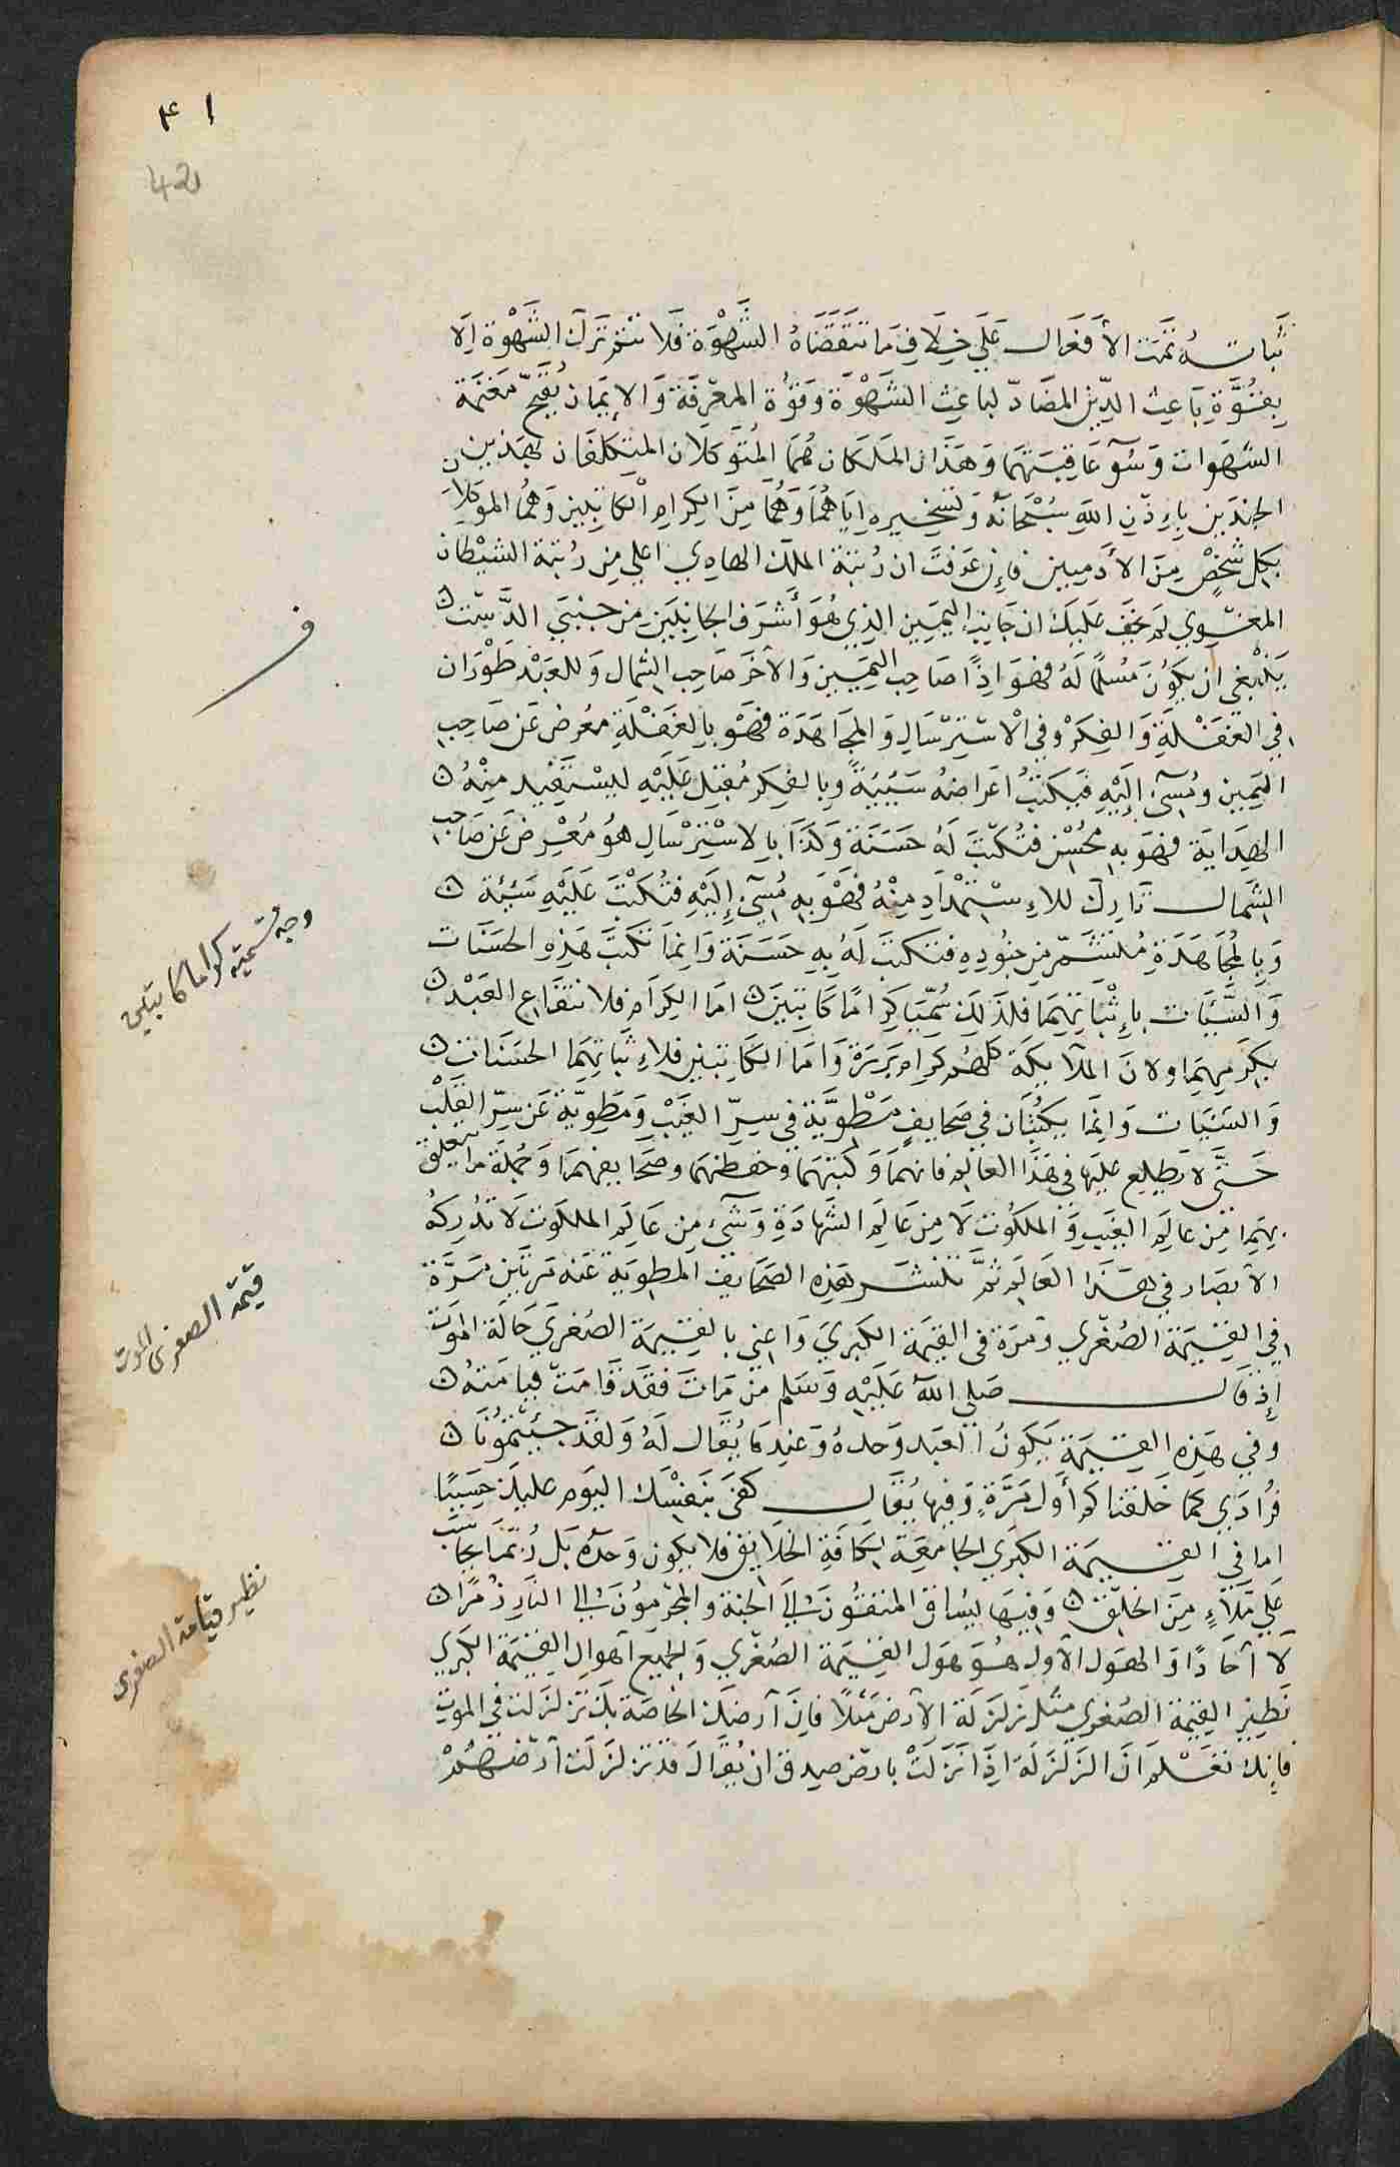 ٤١
42
ثباته ثمت الأفعال على خلاف ما تتقضاه الشهوة فلا تتم ترك الشهوة الا
بقوة باعث الدين المضاد لباعث الشهوة وقوة المعرفة والايمان تقبح مغبة
الشهوات وسوء عاقبتها وهذان الملكان هما المتوكلان المتكلفان بهذين
الجندين بإذن الله سبحانه وتسخيره اياهما وهما من الكرام الكاتبين وهما الموكلان
بكل شخص من الآدميين فإن عرفت ان رتبة الملك الهادي اعلى من رتبة الشيطان
المغوي لم يخف عليك ان جانب اليمين الذي هو أشرف الجانبين من جنبتي الدست
ينبغي ان يكون مسلما له فهو اذًا صاحب اليمين والآخر صاحب الشمال وللعبد طوران
في الغفلة والفكر وفي الاسترسال والمجاهدة فهو بالغفلة معرض عن صاحب
اليمين ومسيء إليه فيكتب اعراضه سيئة وبالفكر مقبل عليه ليستفيد منه
الهداية فهو به محسن فتكتب له حسنة وكذا بالاسترسال هو معرض عن صاحب
الشمال تارك للاستمداد منه فهو به مسيء إليه فتكتب عليه سيئة
وبالمجاهدة مستمد من جنوده فتكتب له به حسنة وانما تكتب هذه الحسنات
والسيئات بإثباتهما فلذلك سميا كراما كاتبين اما الكرام فلانتفاع العبد
بكرمهما ولان الملائكة كلهم كرام بررة واما الكاتبين فلإثباتهما الحسنات
والسيئات وانما يكتبان في صحايف مطوية في سر الغيب ومطوية عن سر القلب
حتى لا تطلع عليها في هذا العالم فانهما وكتبتهما وخطهما وصحايفهما وجملة ما تعلق
بهما من عالم الغيب والملكوت لا من عالم الشهادة وشيء من عالم الملكوت لا تدركه
الابصار في هذا العالم ثم تنشر هذه الصحايف المطوية عنه مرتين مرة
في القيمة الصغرى ومرة في القيمة الكبرى واعني بالقيمة الصغرى حالة الموت
إذ قال صلى الله عليه وسلم من مات فقد قامت قيامته
وفي هذه القيمة يكون العبد وحده وعندما يقال له ولقد جئتمونا
فرادى كما خلقناكم أول مرة وفيها يقال كفى بنفسك اليوم عليك حسيبا
اما في القيمة الكبرى الجامعة لكافة الخلايق فلا يكون وحده بل ربما يحاسب
على ملاء من الخلق وفيها يساق المتقون الى الجنة والمجرمون الى النار زمرا
لا آحادا والهول الأول هو هول القيمة الصغرى ولجميع اهوال القيمة الكبرى
نظير القيمة الصغرى مثل زلزلة الارض مثلا فإن أرضك الخاصة بك تزلزلت في الموت
فإنك تعلم ان الزلزلة اذا نزلت بارض صدق ان يقال قد تزلزلت أرضهم
ف
وجه تسميته كراما كاتبين
قيمة الصغرى الموت
نظير قيامة الصغرى